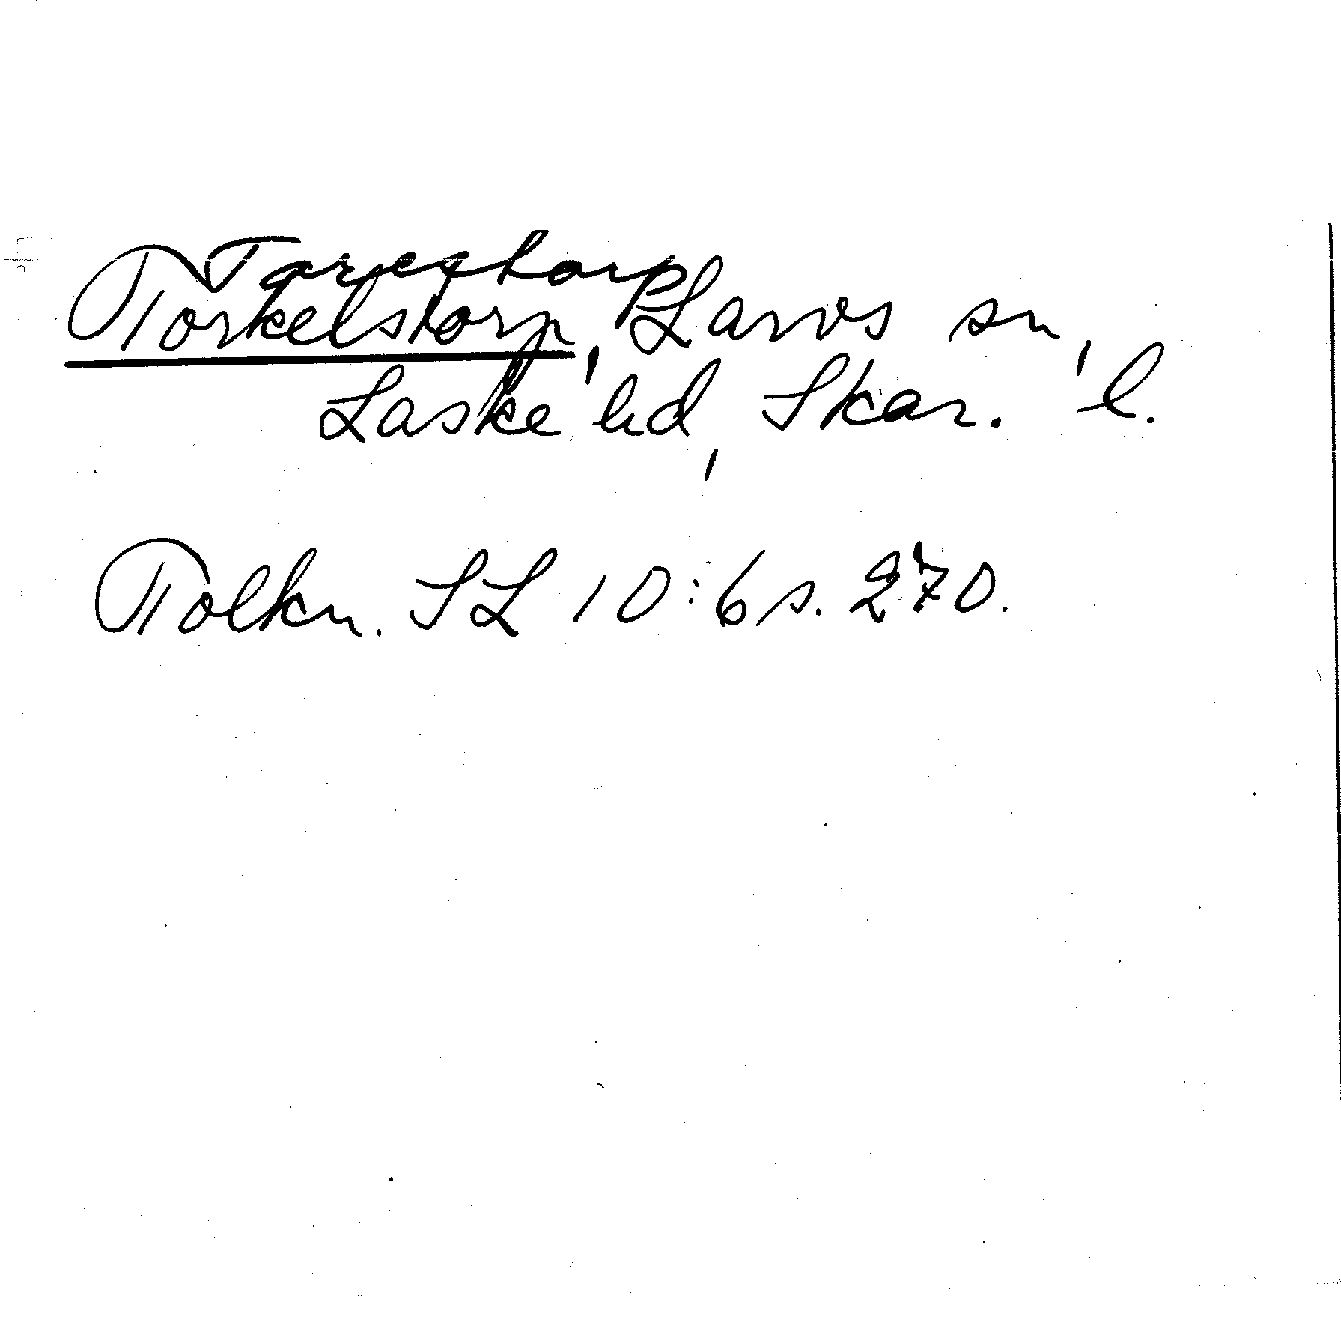 Torestorp
Torkelstorp, Larvs sn,
Laske hd, Skar. l.
Tolkn. SL 10:6 s. 270.